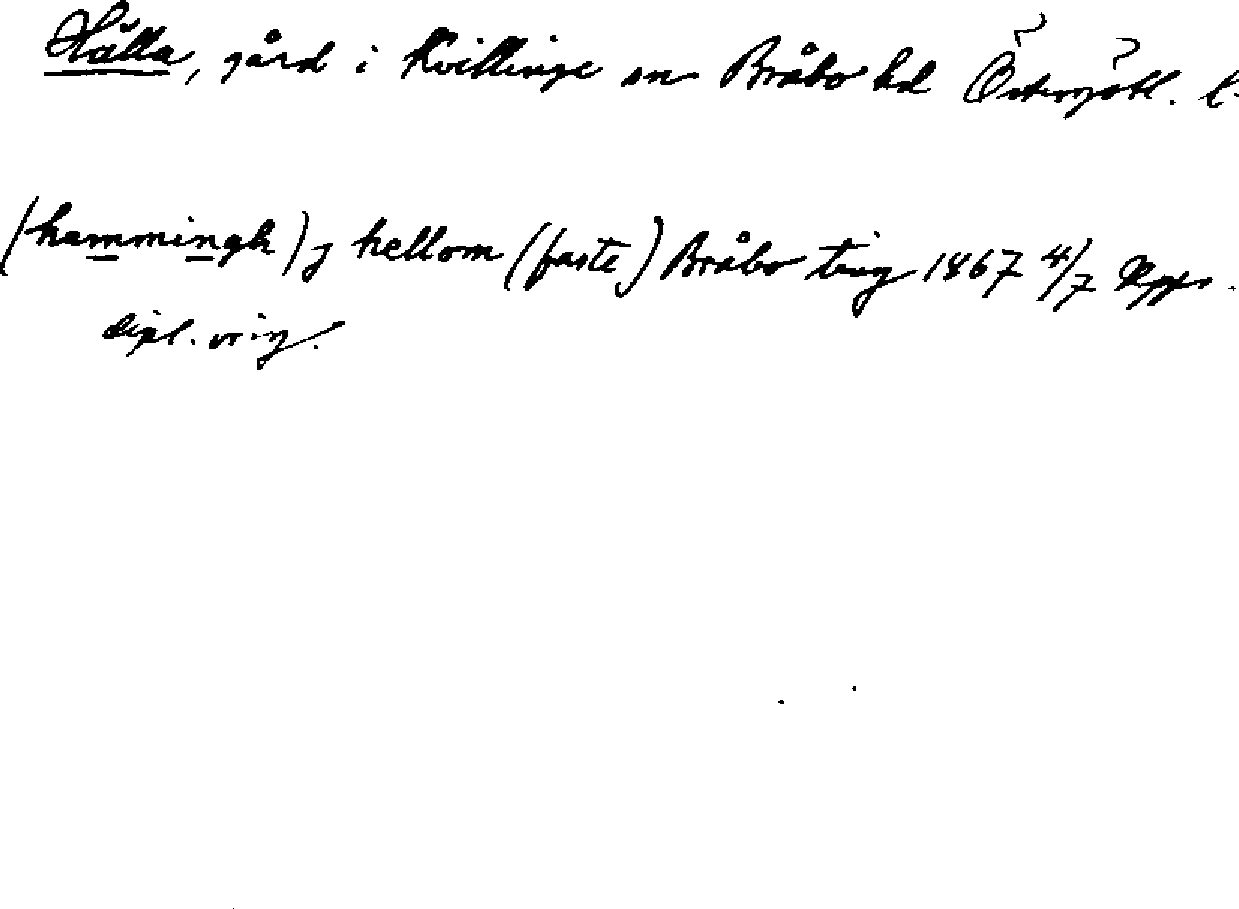 Hälla, gård i Kvillinge sn Bråbo hd Östergötl. l.
(hammingh) j hellom (faste) Bråbo ting 1467 4/7 Upps.
dipl. orig.